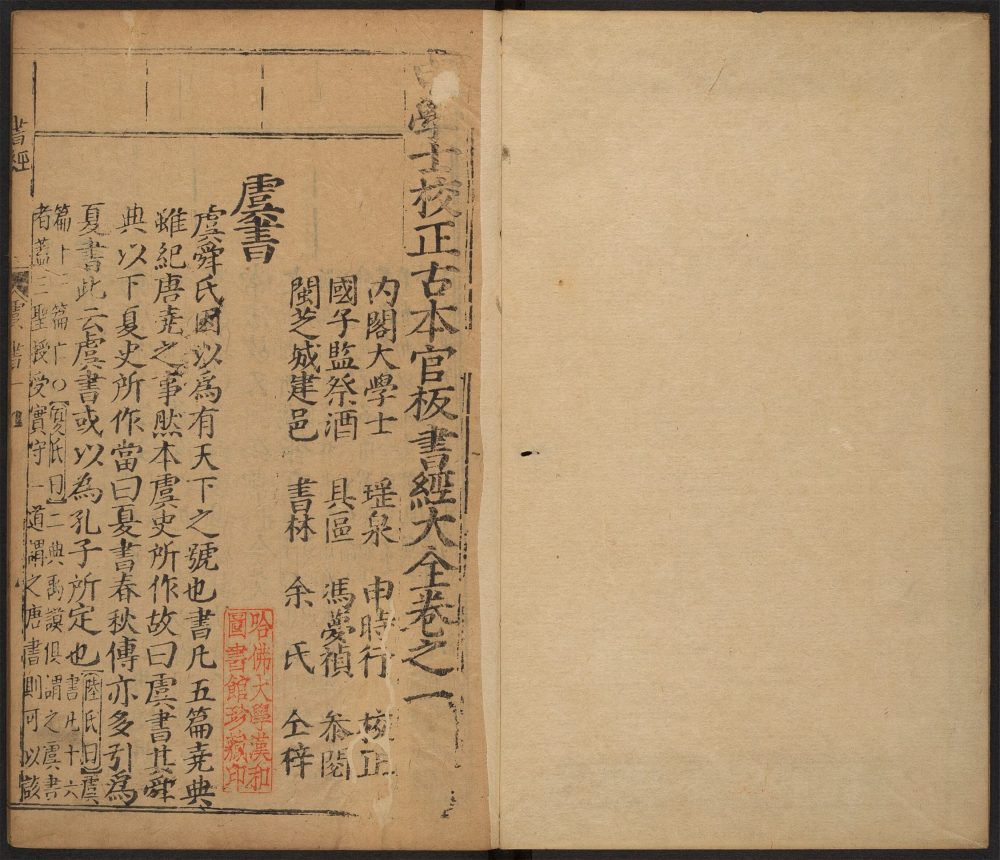 申學士校正古本官板書經大全卷之一
内閣大學士 瑶泉 申時行 校正
國子監祭酒 具區 馮夢禎 叅閱
閩芝城建邑 書林 余氏 仝梓
虞書
虞舜氏因以為有天下之號也書凡五篇堯典
雖紀唐堯之事然本虞史所作故曰虞書其舜
典以下夏史所作當曰夏書春秋傳亦多引為
夏書此云虞書或以為孔子所定也
陸氏曰虞
書凡十六
篇十一篇亡○夏氏曰二典禹謨俱謂之虞書
者蓋三聖授受實守一道謂之唐書則可以該
書經
虞書
哈佛大學漢和
圖書館珍藏印